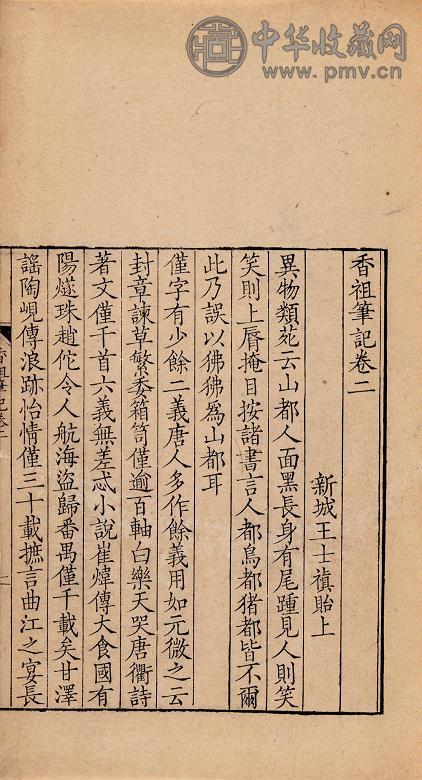 中华收藏网
www.pmv.cn
香祖筆記卷二
新城王士禛貽上
異物類苑云山都人面黑長身有尾踵見人則笑
笑則上脣掩目按諸書言人都鳥都猪都皆不爾
此乃誤以狒狒爲山都耳
僅字有少餘二義唐人多作餘義用如元微之云
封章諫草繁委箱笥僅逾百軸白樂天哭唐衢詩
著文僅千首六義無差忒小說崔煒傳大食國有
陽燧珠趙佗令人航海盜歸番禺僅千載矣甘澤
謠陶峴傳浪跡怡情僅三十載摭言曲江之宴長
香祖筆記卷二